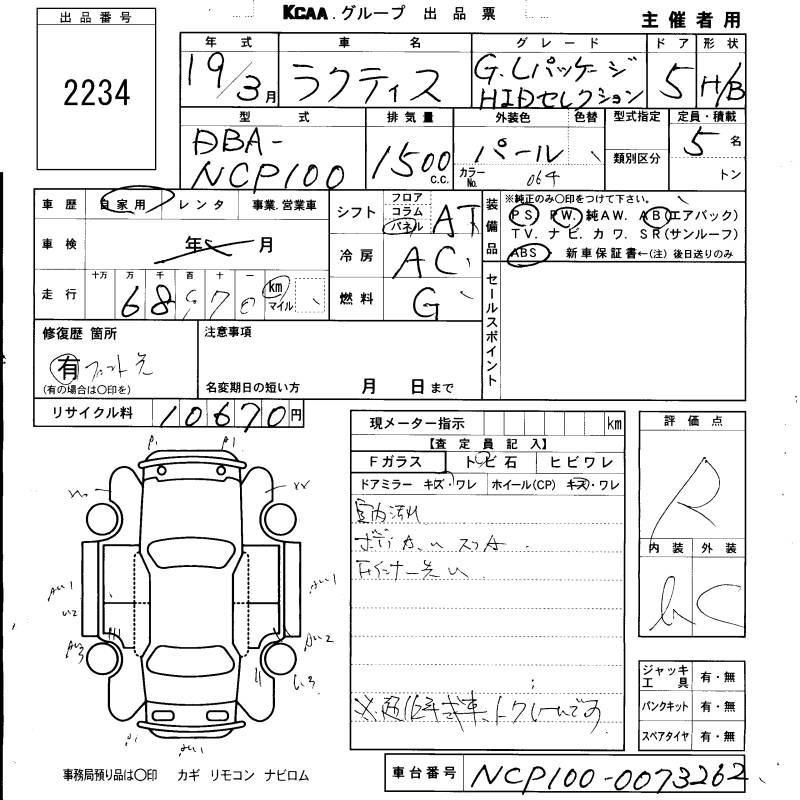 KCAA.グループ 出品票
主催者用
出品番号
2234
年式 車名 グレード ドア 形状
19/3月 ラクティス G.Lパッケージ HIDセレクション 5 H/B
型式 排気量 外装色 色替 型式指定 定員・積載
DBA-NCP100 1500c.c. パール カラーNo. 064 類別区分 5名 トン
車歴 自家用 レンタ 事業.営業車
車検 年 月
走行 十万 万 千 百 十 一 km マイル
シフト フロア コラム パネル AT
冷房 AC
燃料 G
装備品 ※純正のみ○印をつけて下さい。
PS PW. 純AW. AB(エアバック)
TV. ナビ. カワ. SR(サンルーフ)
ABS 新車保証書←(注)後日送りのみ
セールスポイント
修復歴 箇所
有
(有の場合は○印を)
注意事項
名変期日の短い方 月 日まで
リサイクル料 10670円
現メーター指示 km
【査定員記入】
Fガラス トビ石 ヒビワレ
ドアミラー キズ・ワレ ホイール(CP) キズ・ワレ
室内汚れ
評価点
R
内装 外装
C
ジャッキ工具 有・無
パンクキット 有・無
スペアタイヤ 有・無
事務局預り品は○印 カギ リモコン ナビロム
車台番号 NCP100-0073262